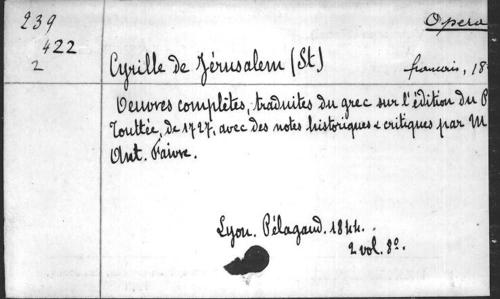 239 Opera
422
2
Cyrille de Jérusalem (St) français, 18
Oeuvres complètes, traduites du grec sur l'édition du P
Touttée, de 1727, avec des notes historiques & critiques par M
Ant. Faivre.
Lyon. Pélagaud. 1844.
2 vol. 8º.